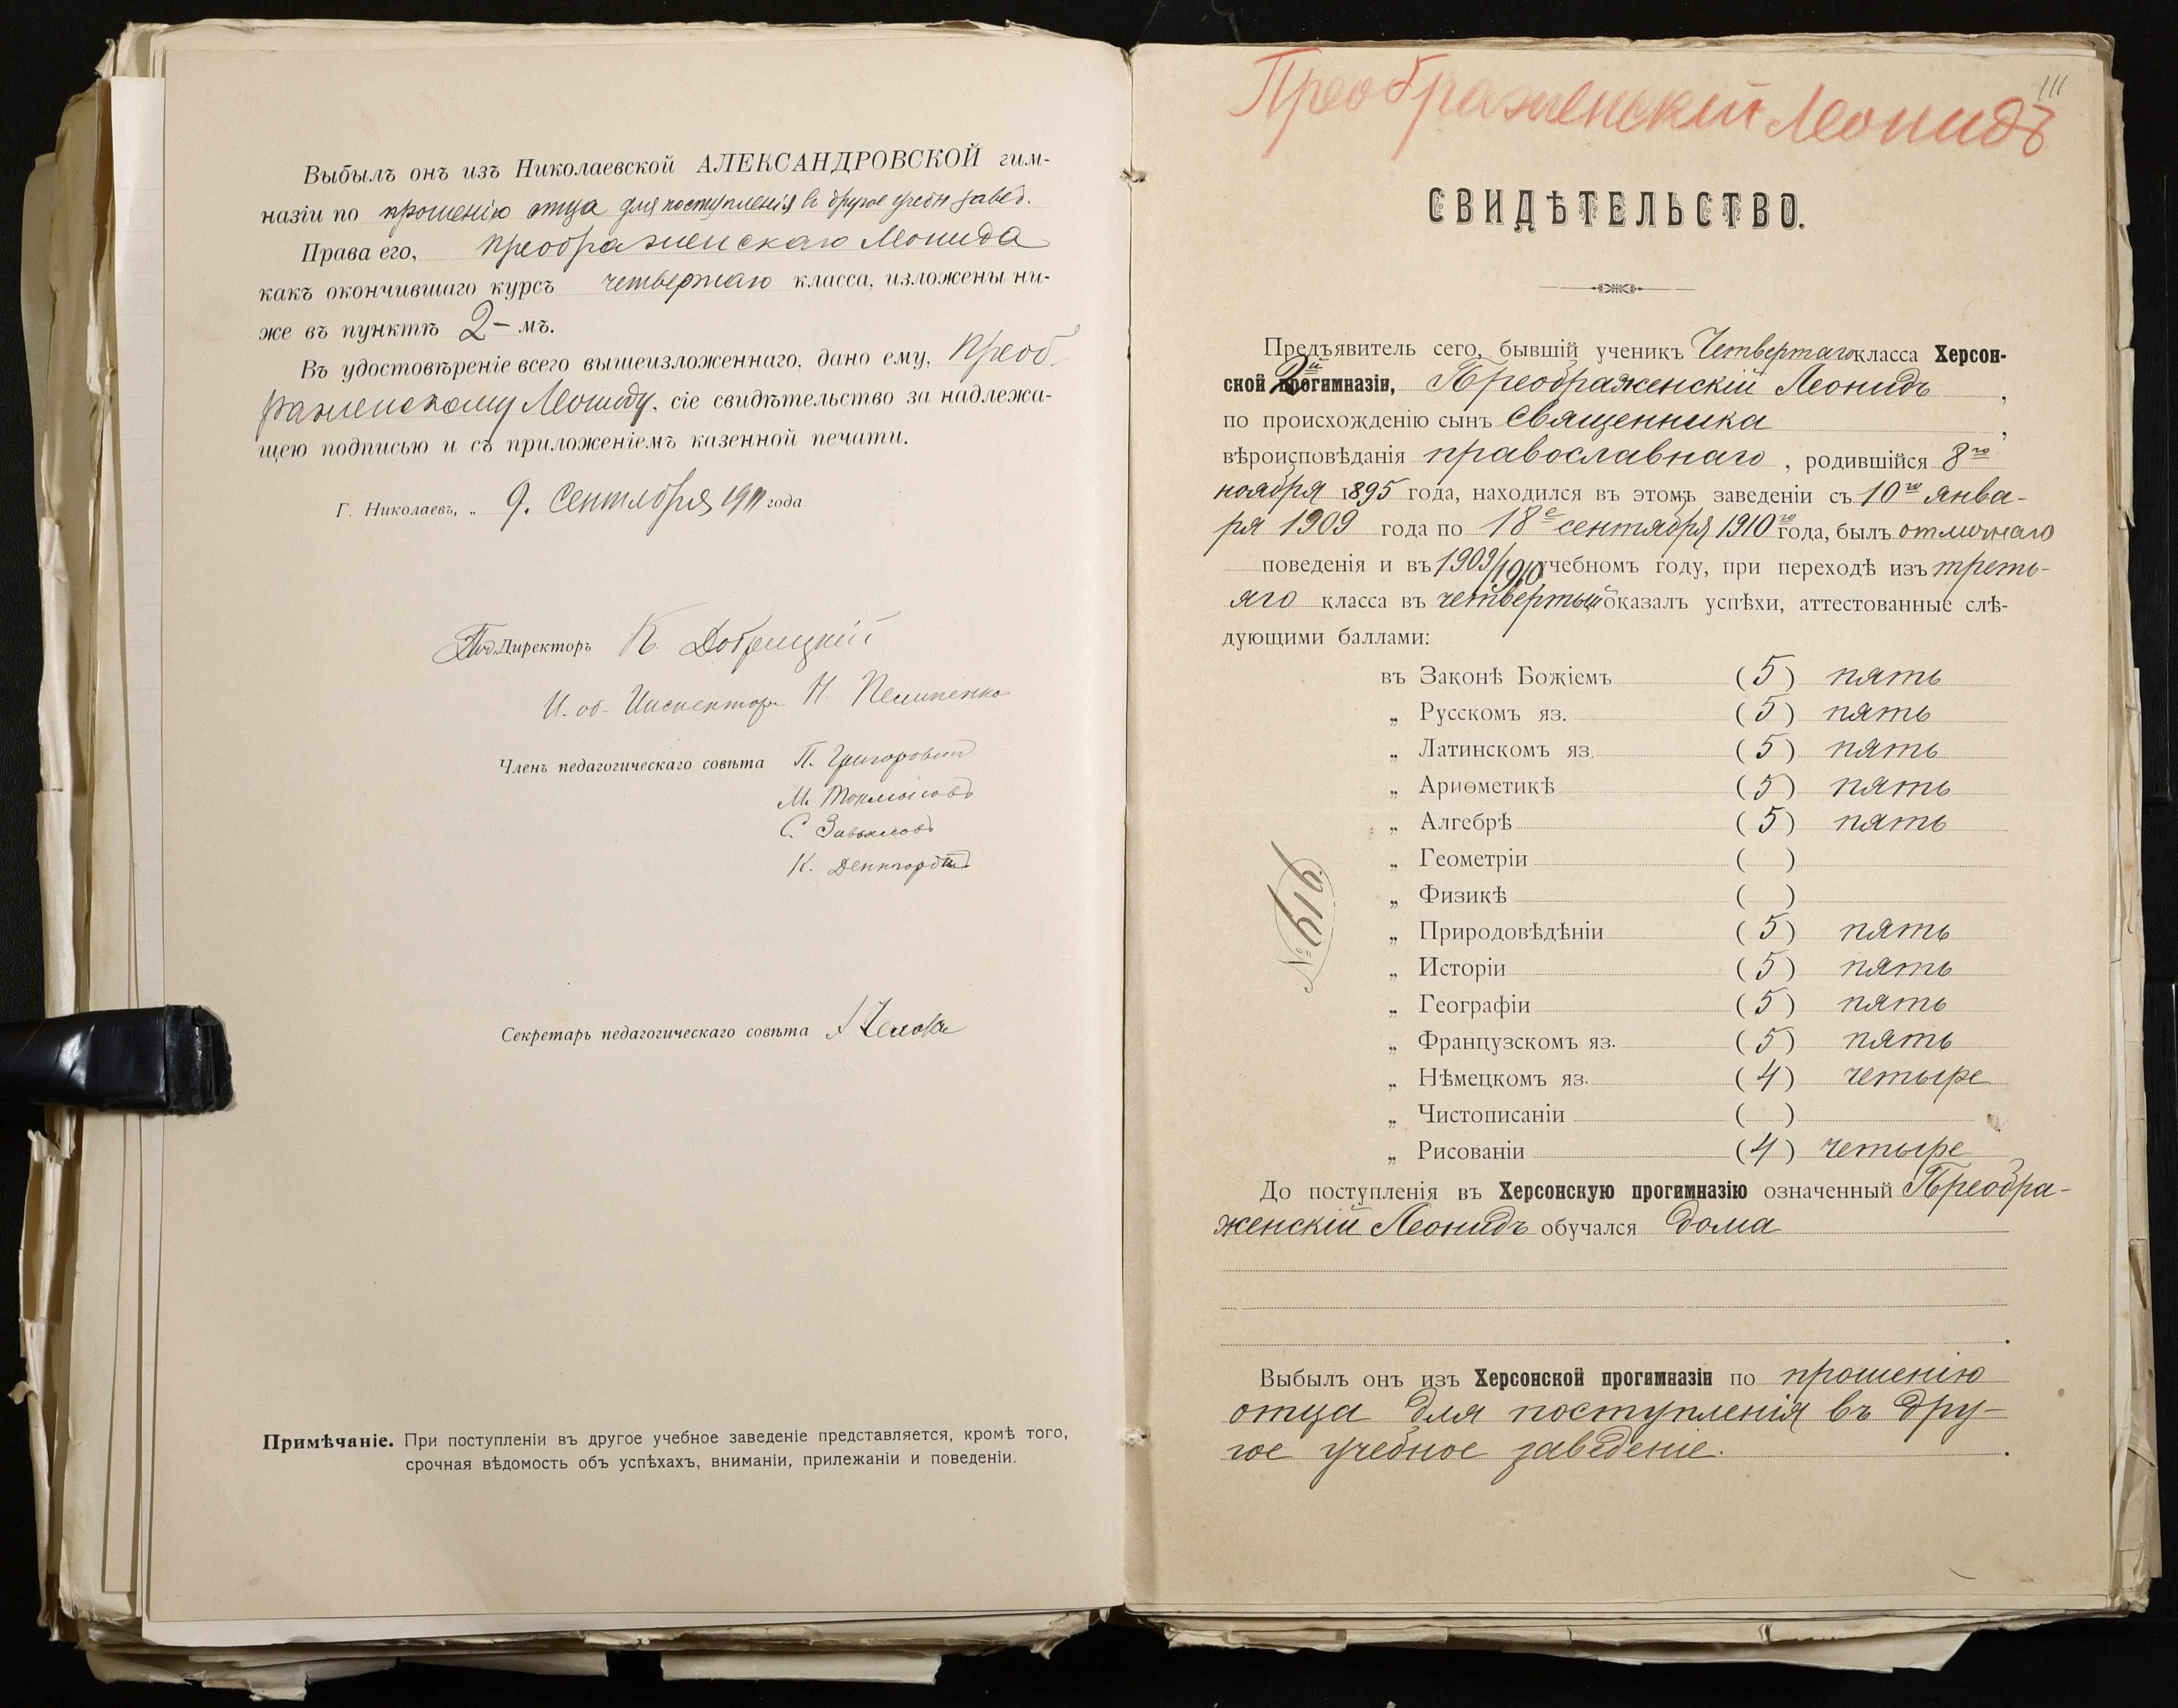 Выбылъ онъ изъ Николаевской АЛЕКСАНДРОВСКОЙ гим-
назіи по прошенію отца для поступленія въ другое учебн завед.
Права его, Преображенскаго Леонида
какъ окончившаго курсъ четвертаго класса, изложены ни-
же въ пунктѣ 2-мъ.
Въ удостовѣреніе всего вышеизложеннаго, дано ему, Преоб-
раженскому Леониду, сіе свидѣтельство за надлежа-
щею подписью и съ приложеніемъ казенной печати.
Г. Николаевъ, „ 9. Сентября 1911 года.
Директоръ К.
И. об. Инспектора Н.
Членъ педагогическаго совѣта П. Григорович
М.
С. Завьялов
К.
Секретарь педагогическаго совѣта
Примѣчаніе. При поступленіи въ другое учебное заведеніе представляется, кромѣ того,
срочная вѣдомость объ успѣхахъ, вниманіи, прилежаніи и поведеніи.
111
Преображенскій Леонидъ
СВИДѢТЕЛЬСТВО.
Предъявитель сего, бывшій ученикъ Четвертаго класса Херсон-
ской 2й прогимназіи, Преображенскій Леонидъ,
по происхожденію сынъ священника,
вѣроисповѣданія православнаго, родившійся 8го
ноября 1895 года, находился въ этомъ заведеніи съ 10го янва-
ря 1909 года по 18е сентября 1910го года, былъ отличнаго
поведенія и въ 1909/1910 учебномъ году, при переходѣ изъ треть-
яго класса въ четвертый оказалъ успѣхи, аттестованные слѣ-
дующими баллами:
въ Законѣ Божіемъ (5) пять
„ Русскомъ яз. (5) пять
„ Латинскомъ яз. (5) пять
„ Ариѳметикѣ (5) пять
„ Алгебрѣ (5) пять
„ Геометріи ( )
„ Физикѣ ( )
„ Природовѣдѣніи (5) пять
„ Исторіи (5) пять
„ Географіи (5) пять
„ Французскомъ яз. (5) пять
„ Нѣмецкомъ яз. (4) четыре
„ Чистописаніи ( )
„ Рисованіи (4) четыре
№ 616.
До поступленія въ Херсонскую прогимназію означенный Преобра-
женскій Леонидъ обучался дома
Выбылъ онъ изъ Херсонской прогимназіи по прошенію
отца для поступленія въ дру-
гое учебное заведеніе.